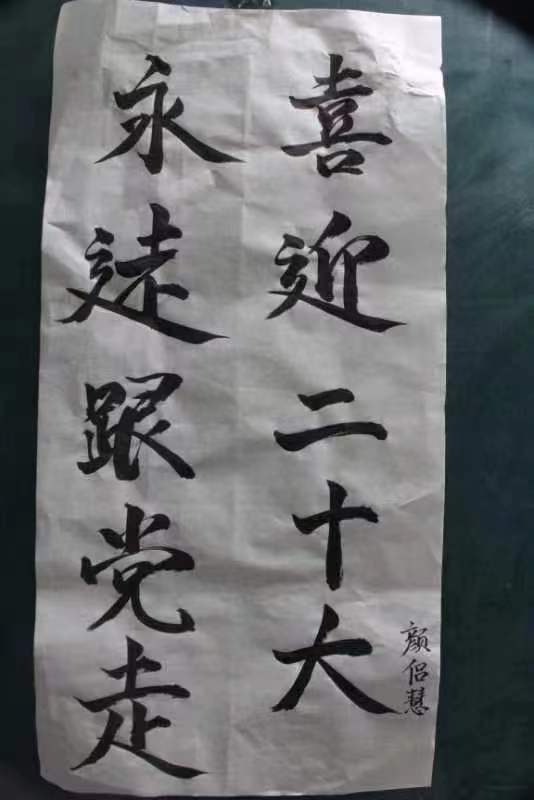 喜迎二十大
永远跟党走
颜侣慧